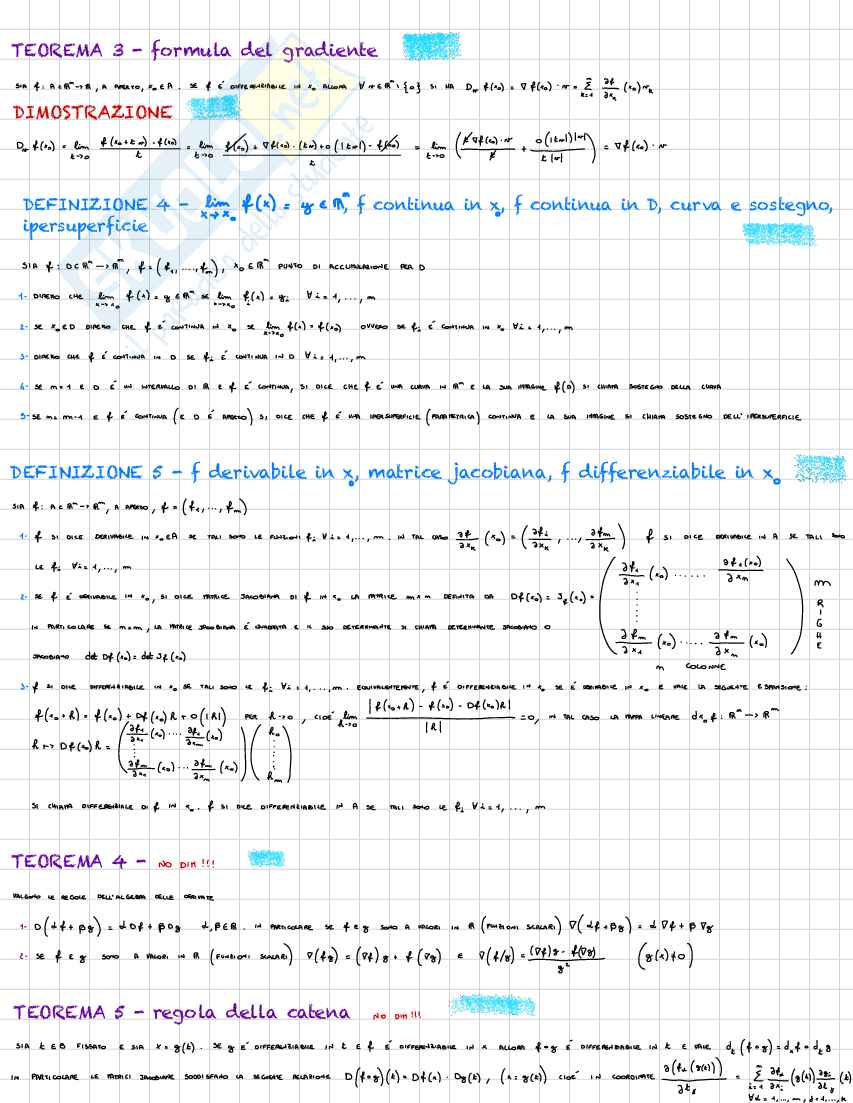 TEOREMA 3 - formula del gradiente
SIA f: A⊂ℝⁿ→ℝ, A APERTO, x₀∈A. SE f È DIFFERENZIABILE IN x₀ ALLORA ∀ v∈ℝⁿ\{0} SI HA D_v f(x₀) = ∇f(x₀)·v = Σ_{k=1}^{n} ∂f/∂x_k (x₀) v_k
DIMOSTRAZIONE
D_v f(x₀) = lim_{t→0} (f(x₀+tv) - f(x₀))/t = lim_{t→0} (f(x₀) + ∇f(x₀)·(tv) + o(|tv|) - f(x₀))/t = lim_{t→0} (t∇f(x₀)·v/t + o(|tv|)|v|/(t|v|)) = ∇f(x₀)·v
DEFINIZIONE 4 - lim_{x→x₀} f(x) = y ∈ ℝᵐ, f continua in x₀, f continua in D, curva e sostegno,
ipersuperficie
SIA f: D⊂ℝⁿ→ℝᵐ, f=(f₁,....,fₘ), x₀∈ℝⁿ PUNTO DI ACCUMULAZIONE PER D
1- DIREMO CHE lim_{x→x₀} f(x) = y ∈ℝᵐ SE lim_{x→x₀} fᵢ(x) = yᵢ ∀i=1,...,m
2- SE x₀∈D DIREMO CHE f È CONTINUA IN x₀ SE lim_{x→x₀} f(x) = f(x₀) OVVERO SE fᵢ È CONTINUA IN x₀ ∀i=1,...,m
3- DIREMO CHE f È CONTINUA IN D SE fᵢ È CONTINUA IN D ∀i=1,...,m
4- SE n=1 E D È UN INTERVALLO DI ℝ E f È CONTINUA, SI DICE CHE f È UNA CURVA IN ℝᵐ E LA SUA IMMAGINE f(D) SI CHIAMA SOSTEGNO DELLA CURVA
5- SE n=m-1 E f È CONTINUA (E D È APERTO) SI DICE CHE f È UNA IPERSUPERFICIE (PARAMETRICA) CONTINUA E LA SUA IMMAGINE SI CHIAMA SOSTEGNO DELL'IPERSUPERFICIE
DEFINIZIONE 5 - f derivabile in x₀, matrice jacobiana, f differenziabile in x₀
SIA f: A⊂ℝⁿ→ℝᵐ, A APERTO, f=(f₁,...,fₘ)
1- f SI DICE DERIVABILE IN x₀∈A SE TALI SONO LE FUNZIONI fᵢ ∀i=1,...,m. IN TAL CASO ∂f/∂x_k (x₀) = (∂f₁/∂x_k, ..., ∂fₘ/∂x_k) f SI DICE DERIVABILE IN A SE TALI SONO
LE fᵢ ∀i=1,...,m
2- SE f È DERIVABILE IN x₀, SI DICE MATRICE JACOBIANA DI f IN x₀ LA MATRICE m×n DEFINITA DA Df(x₀) = J_f(x₀) = (∂f₁/∂x₁ (x₀) ...... ∂f₁(x₀)/∂xₙ ⋮ ∂fₘ/∂x₁ (x₀) ..... ∂fₘ/∂xₙ (x₀)) m RIGHE
IN PARTICOLARE SE n=m, LA MATRICE JACOBIANA È QUADRATA E IL SUO DETERMINANTE SI CHIAMA DETERMINANTE JACOBIANO O
JACOBIANO det Df(x₀) = det Jf(x₀)
n COLONNE
3- f SI DICE DIFFERENZIABILE IN x₀ SE TALI SONO LE fᵢ ∀i=1,...,m. EQUIVALENTEMENTE, f È DIFFERENZIABILE IN x₀ SE È DERIVABILE IN x₀ E VALE LA SEGUENTE ESPANSIONE:
f(x₀+h) = f(x₀) + Df(x₀)h + o(|h|) PER h→0, CIOÈ lim_{h→0} |f(x₀+h) - f(x₀) - Df(x₀)h|/|h| = 0, IN TAL CASO LA MAPPA LINEARE dx₀f: ℝⁿ→ℝᵐ
h ↦ Df(x₀)h = (∂f₁/∂x₁ (x₀) .... ∂f₁/∂xₙ (x₀) ⋮ ∂fₘ/∂x₁ (x₀) ... ∂fₘ/∂xₙ (x₀)) (h₀ ⋮ hₙ)
SI CHIAMA DIFFERENZIALE DI f IN x₀. f SI DICE DIFFERENZIABILE IN A SE TALI SONO LE fᵢ ∀i=1,...,m
TEOREMA 4 - NO DIM!!!
VALGONO LE REGOLE DELL'ALGEBRA DELLE DERIVATE
1- D(αf+βg) = αDf+βDg α,β∈ℝ. IN PARTICOLARE SE f E g SONO A VALORI IN ℝ (FUNZIONI SCALARI) ∇(αf+βg) = α∇f+β∇g
2- SE f E g SONO A VALORI IN ℝ (FUNZIONI SCALARI) ∇(fg) = (∇f)g + f(∇g) E ∇(f/g) = ((∇f)g - f(∇g))/g² (g(x)≠0)
TEOREMA 5 - regola della catena NO DIM!!!
SIA t∈B FISSATO E SIA x=g(t). SE g È DIFFERENZIABILE IN t E f È DIFFERENZIABILE IN x ALLORA f∘g È DIFFERENZIABILE IN t E VALE d_t(f∘g) = d_x f ∘ d_t g
IN PARTICOLARE LE MATRICI JACOBIANE SODDISFANO LA SEGUENTE RELAZIONE D(f∘g)(t) = Df(x)·Dg(t), (x=g(t)) CIOÈ IN COORDINATE ∂(f_α(g(t)))/∂t_j = Σ_{i=1}^{n} ∂f_α/∂xᵢ (g(t)) ∂gᵢ/∂t_j (t)